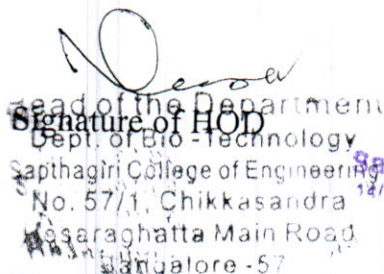 Head of the Department
Signature of HOD
Dept. of Bio - Technology
Sapthagiri College of Engineering
No. 57/1, Chikkasandra
Hesaraghatta Main Road
Bangalore - 57